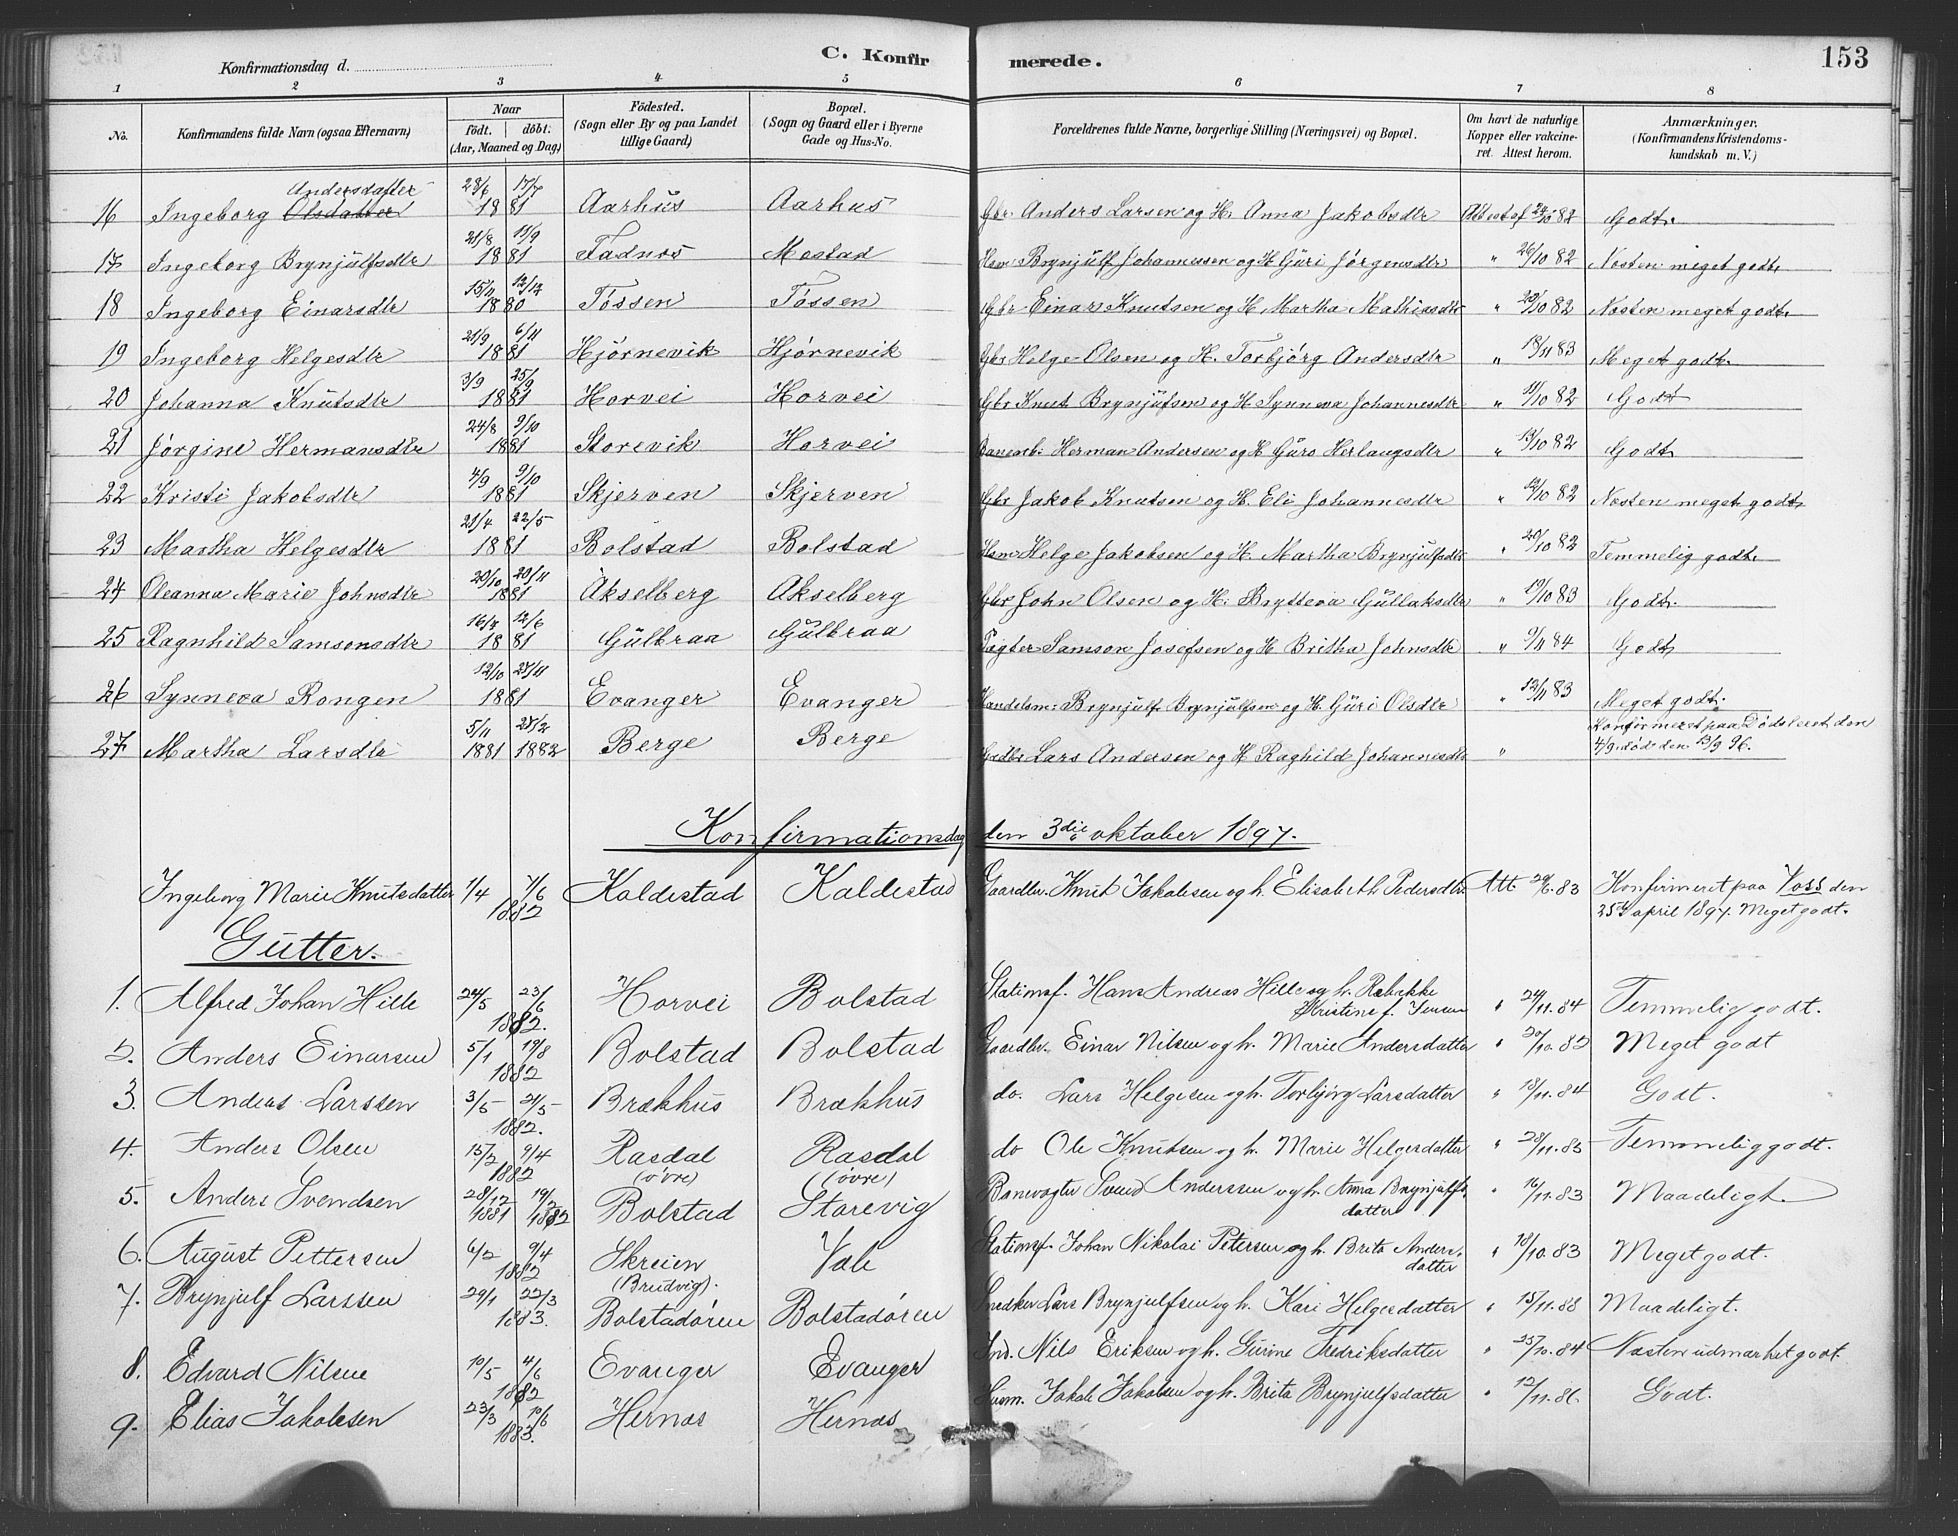 C. Konfirmerede.
153
Konfirmationsdag d.
1 2 3 4 5 6 7 8
No.
Konfirmandens fulde Navn (ogsaa Efternavn)
Naar
födt. döbt.
(Aar, Maaned og Dag)
Födested.
(Sogn eller By og paa Landet
tillige Gaard)
Bopæl.
(Sogn og Gaard eller i Byerne
Gade og Hus-No.
Forældrenes fulde Navne, borgerlige Stilling (Næringsvei) og Bopæl.
Om havt de naturlige
Kopper eller vakcine-
ret. Attest herom.
Anmærkninger.
(Konfirmandens Kristendoms-
kundskab m. V.)
Andersdatter
16 Ingeborg Olsdatter 28/6 17/7 1881 Aarhus Aarhus Gbr Anders Larsen og H. Anna Jakobsdtr Attest af 24/10 82 Godt.
17 Ingeborg Brynjulfsdtr 21/8 11/9 1881 Fadnæs Mostad Hsm Brynjulf Johannessen og H Guri Jørgensdtr " 26/10 82 Næsten meget godt.
18 Ingeborg Einarsdtr 15/11 12/12 1880 Tøssen Tøssen Gbr Einar Knutsen og H. Martha Mathiasdtr " 20/10 82 Næsten meget godt.
19 Ingeborg Helgesdtr 21/9 6/11 1881 Hjørnevik Hjørnevik Gbr Helge Olsen og H. Torbjørg Andersdtr " 18/11 83 Meget godt.
20 Johanna Knutsdtr 3/9 25/9 1881 Horvei Horvei Gbr Knut Brynjulfsen og H. Synneva Johannesdtr " 11/10 82 Godt
21 Jørgine Hermansdtr 24/8 9/10 1881 Storevik Horvei Banemb: Herman Andersen og H Guro Herlaugsdtr " 13/10 82 Godt
22 Kristi Jakobsdtr 4/9 9/10 1881 Skjerven Skjerven Gbr Jakob Knutsen og H. Eli Johannesdtr " 12/10 82 Næsten meget godt
23 Martha Helgesdtr 21/4 22/5 1881 Bolstad Bolstad Hsm Helge Jakobsen og H. Martha Brynjulfsdtr " 20/10 82 Temmelig godt.
24 Oleanna Marie Johnsdtr 20/10 20/11 1881 Akselberg Akselberg Gbr John Olsen og H. Brytteva Gullaksdtr " 19/10 83 Godt.
25 Ragnhild Samsonsdtr 16/4 12/6 1881 Gulbraa Gulbraa Pagter Samson Josefsen og H Britha Johnsdtr " 9/11 84 Godt
26 Synneva Rongen 12/10 27/11 1881 Evanger Evanger Handelsm: Brynjulf Brynjulfsen og H. Guri Olsdtr " 13/11 83 Meget godt.
27 Martha Larsdtr 5/11 1881 25/2 1882 Berge Berge Gbr Lars Andersen og H Raghild Johannesdtr "
Konfirmeret paa Dødsleiet den
4/9. død den 13/9 96.
Konfirmationsdag den 3die oktober 1897.
Ingeborg Marie Knutsdatter 1/4 7/6 1882 Kaldestad Kaldestad Gaardbr. Knut Jakobsen og h. Elisabeth Pedersdtr. Att. 29/6. 83 Konfirmeret paa Voss den
25de april 1897. Meget godt.
Gutter.
1. Alfred Johan Hille 24/5 23/6 1882. Horvei Bolstad Stationsf. Hans Andreas Hille og h. Rebekke
Kristine f. Jensen " 24/11. 84 Temmelig godt.
2. Anders Einarsen 5/1 19/8 1882 Bolstad Bolstad Gaardbr. Einar Nilsen og h. Marie Andersdatter " 20/10. 82 Meget godt
3. Anders Larssen 3/5 21/5 1882. Brækhus Brækhus do. Lars Helgesen og h. Torbjörg Larsdatter " 18/11. 84 Godt.
4. Anders Olsen 15/2 9/4 1882 Rasdal Rasdal do Ole Knutsen og h. Marie Helgesdatter " 28/11. 85 Temmelig godt.
(övre) (övre)
5. Anders Svendsen 28/12 1881 19/2 1882 Bolstad Storevig Banevogter Svend Anderssen og h. Anna Brynjulfs-
datter " 16/11. 83 Maadeligt.
6. August Pettersen 6/2 9/4 1882 Skreien Vale Stationsf. Johan Nikolai Petersen og h. Brita Anders-
datter " 18/10. 83 Meget godt.
(Brudvig).
7. Brynjulf Larssen 29/1 22/3 1883. Bolstadören Bolstadören Snedker Lars Brynjulfsen og h. Kari Helgesdatter " 15/11. 88 Maadeligt.
8. Edvard Nilsen 10/5 4/6 1882 Evanger Evanger Ind. Nils Eriksen og h. Gurine Fredriksdatter " 25/10. 84 Næsten udmærket godt.
9. Elias Jakobsen 23/3 10/6 1883. Hernæs Hernæs Husm. Jakob Jakobsen og h. Brita Brynjulfsdatter " 12/11. 86. Godt.